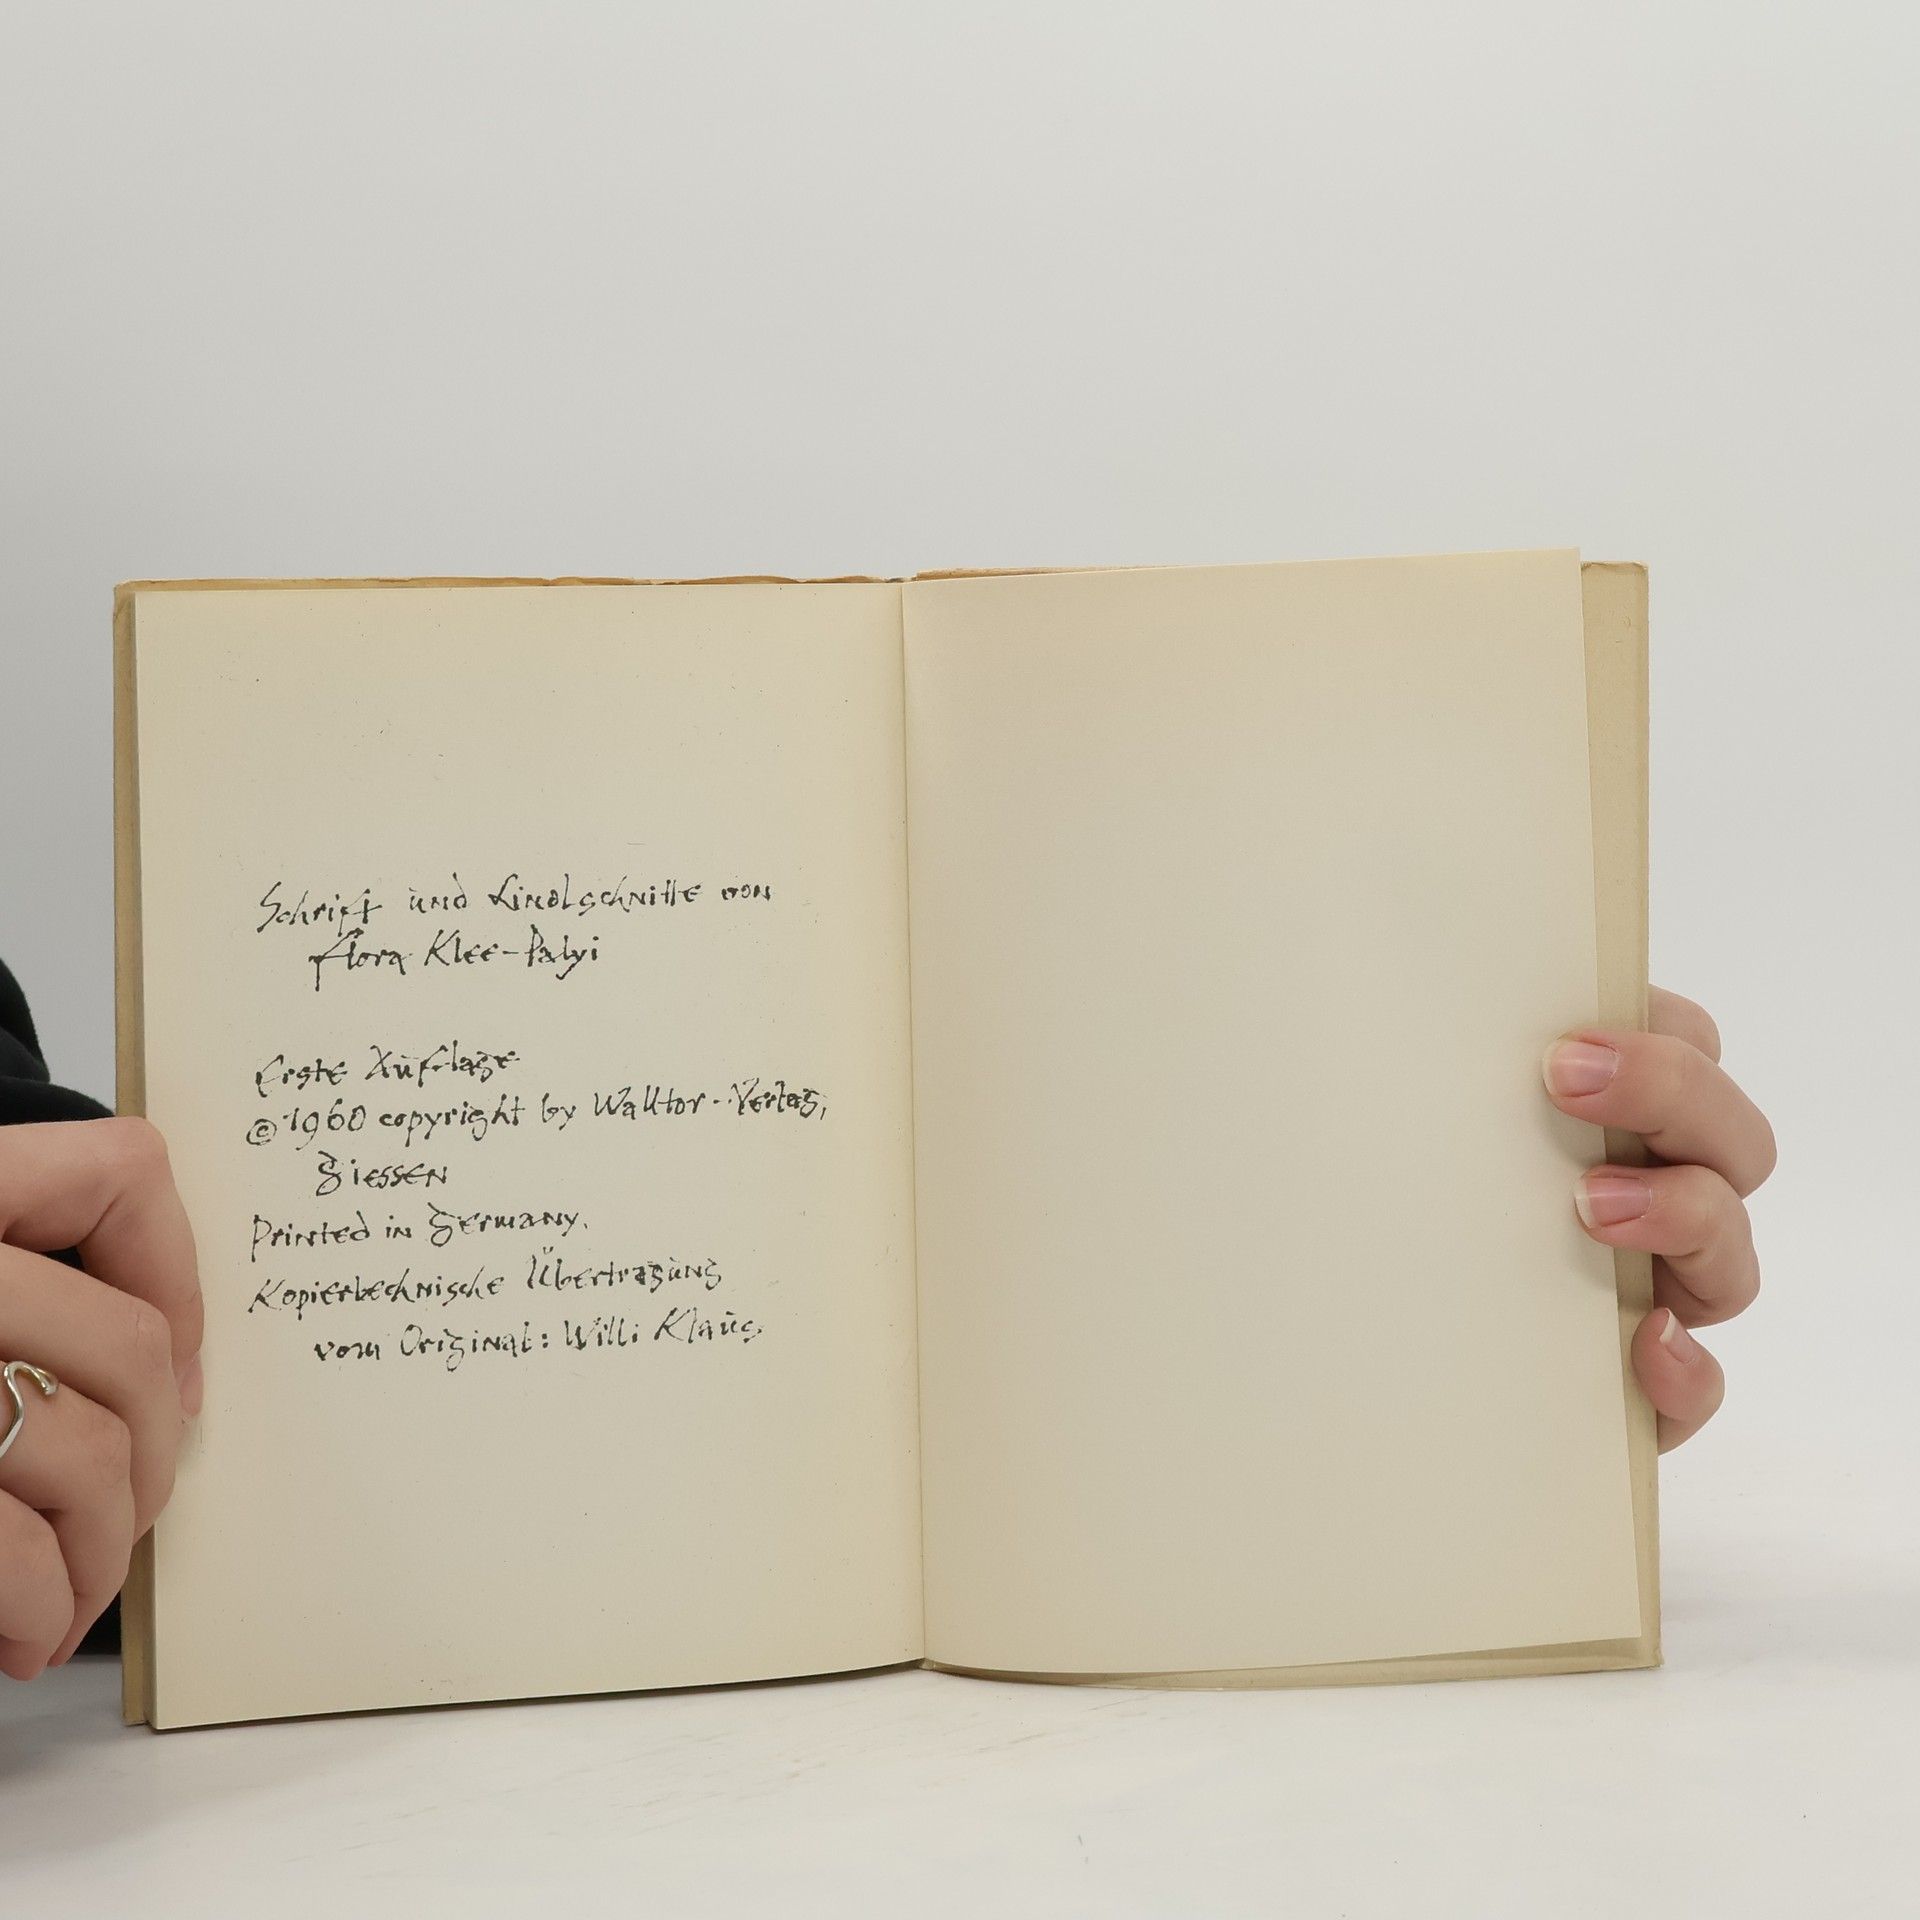 Schrift und Linolschnitte von
Flora Klee-Palyi
Erste Auflage
© 1960 copyright by Walltor-Verlag,
Giessen
Printed in Germany.
Kopiertechnische Übertragung
vom Original: Willi Klaus